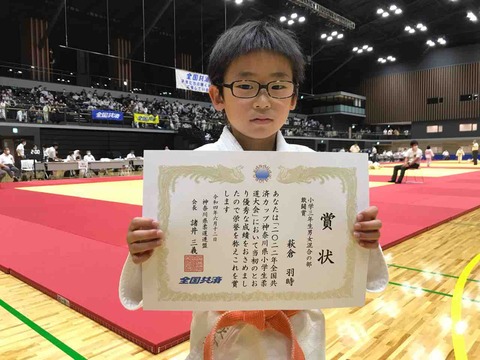 全国共済
全国共済
賞状
小学三年生男女混合の部
敢闘賞
萩倉 羽時
あなたは「二〇二二年全国共
済カップ神奈川県小学生柔
道大会」において当初のとお
り優秀な成績をおさめまし
たので栄誉を称えこれを賞
します
令和四年六月十二日
神奈川県柔道連盟
会長 諸井 三義
全国共済